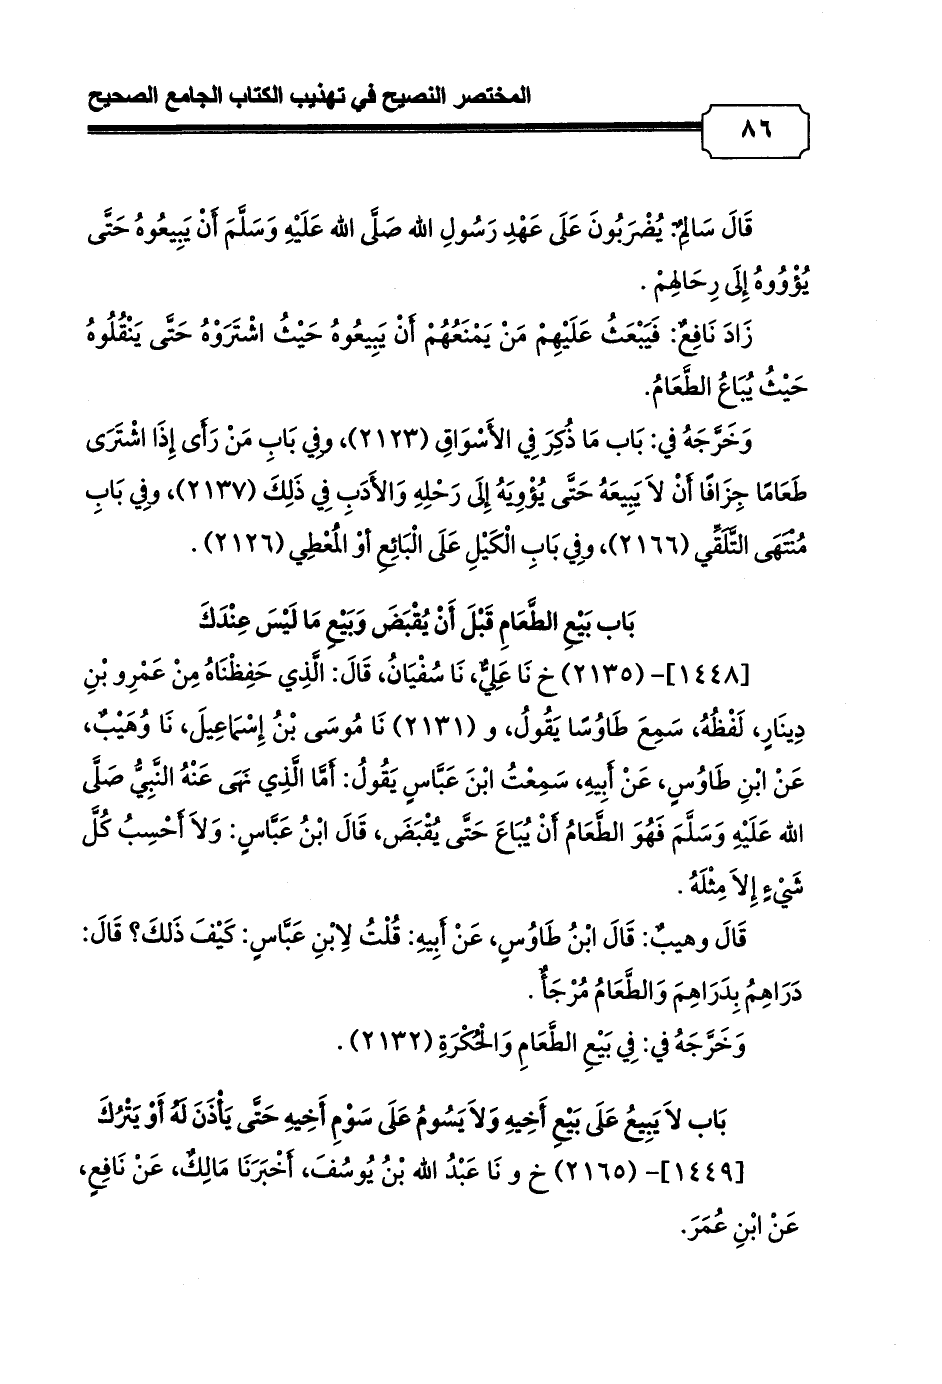 المختصر النصيح في تهذيب الكتاب الجامع الصحيح
٨٦
قَالَ سَالِمٌ: يُضْرَبُونَ عَلَى عَهْدِ رَسُولِ الله صَلَّى الله عَلَيْهِ وَسَلَّمَ أَنْ يَبِيعُوهُ حَتَّى
يُؤْوُوهُ إِلَى رِحَالِهِمْ .
زَادَ نَافِعٌ: فَيَبْعَثُ عَلَيْهِمْ مَنْ يَمْنَعُهُمْ أَنْ يَبِيعُوهُ حَيْثُ اشْتَرَوْهُ حَتَّى يَنْقُلُوهُ
حَيْثُ يُبَاعُ الطَّعَامُ.
وَخَرَّجَهُ في: بَاب مَا ذُكِرَ فِي الأَسْوَاقِ (٢١٢٣)، وفِي بَابِ مَنْ رَأَى إِذَا اشْتَرَى
طَعَامًا جِزَافًا أَنْ لاَ يَبِيعَهُ حَتَّى يُؤْوِيَهُ إِلَى رَحْلِهِ وَالأَدَبِ فِي ذَلِكَ (٢١٣٧)، وفِي بَابِ
مُنْتَهَى التَّلَقِّي (٢١٦٦)، وفِي بَابِ الْكَيْلِ عَلَى الْبَائِعِ أوْ المُعْطِي (٢١٢٦) .
بَاب بَيْعِ الطَّعَامِ قَبْلَ أَنْ يُقْبَضَ وَبَيْعِ مَا لَيْسَ عِنْدَكَ
[١٤٤٨]- (٢١٣٥) خ نَا عَلِيٌّ، نَا سُفْيَانُ، قَالَ: الَّذِي حَفِظْنَاهُ مِنْ عَمْرِو بْنِ
دِينَارٍ، لَفْظُهُ، سَمِعَ طَاوُسًا يَقُولُ، و (٢١٣١) نَا مُوسَى بْنُ إِسْمَاعِيلَ، نَا وُهَيْبٌ،
عَنْ ابْنِ طَاوُسٍ، عَنْ أَبِيهِ، سَمِعْتُ ابْنَ عَبَّاسٍ يَقُولُ: أَمَّا الَّذِي نَهَى عَنْهُ النَّبِيُّ صَلَّى
الله عَلَيْهِ وَسَلَّمَ فَهُوَ الطَّعَامُ أَنْ يُبَاعَ حَتَّى يُقْبَضَ، قَالَ ابْنُ عَبَّاسٍ: وَلاَ أَحْسِبُ كُلَّ
شَيْءٍ إِلاَ مِثْلَهُ .
قَالَ وهيبٌ: قَالَ ابْنُ طَاوُسٍ، عَنْ أَبِيهِ: قُلْتُ لِابْنِ عَبَّاسٍ: كَيْفَ ذَلكَ؟ قَالَ:
دَرَاهِمُ بِدَرَاهِمَ وَالطَّعَامُ مُرْجَأٌ .
وَخَرَّجَهُ في: فِي بَيْعِ الطَّعَامِ وَالْحُكْرَةِ (٢١٣٢) .
بَاب لاَ يَبِيعُ عَلَى بَيْعِ أَخِيهِ وَلاَ يَسُومُ عَلَى سَوْمِ أَخِيهِ حَتَّى يَأْذَنَ لَهُ أَوْ يَتْرُكَ
[١٤٤٩]- (٢١٦٥) خ و نَا عَبْدُ الله بْنُ يُوسُفَ، أَخْبَرَنَا مَالِكٌ، عَنْ نَافِعٍ،
عَنْ ابْنِ عُمَرَ.